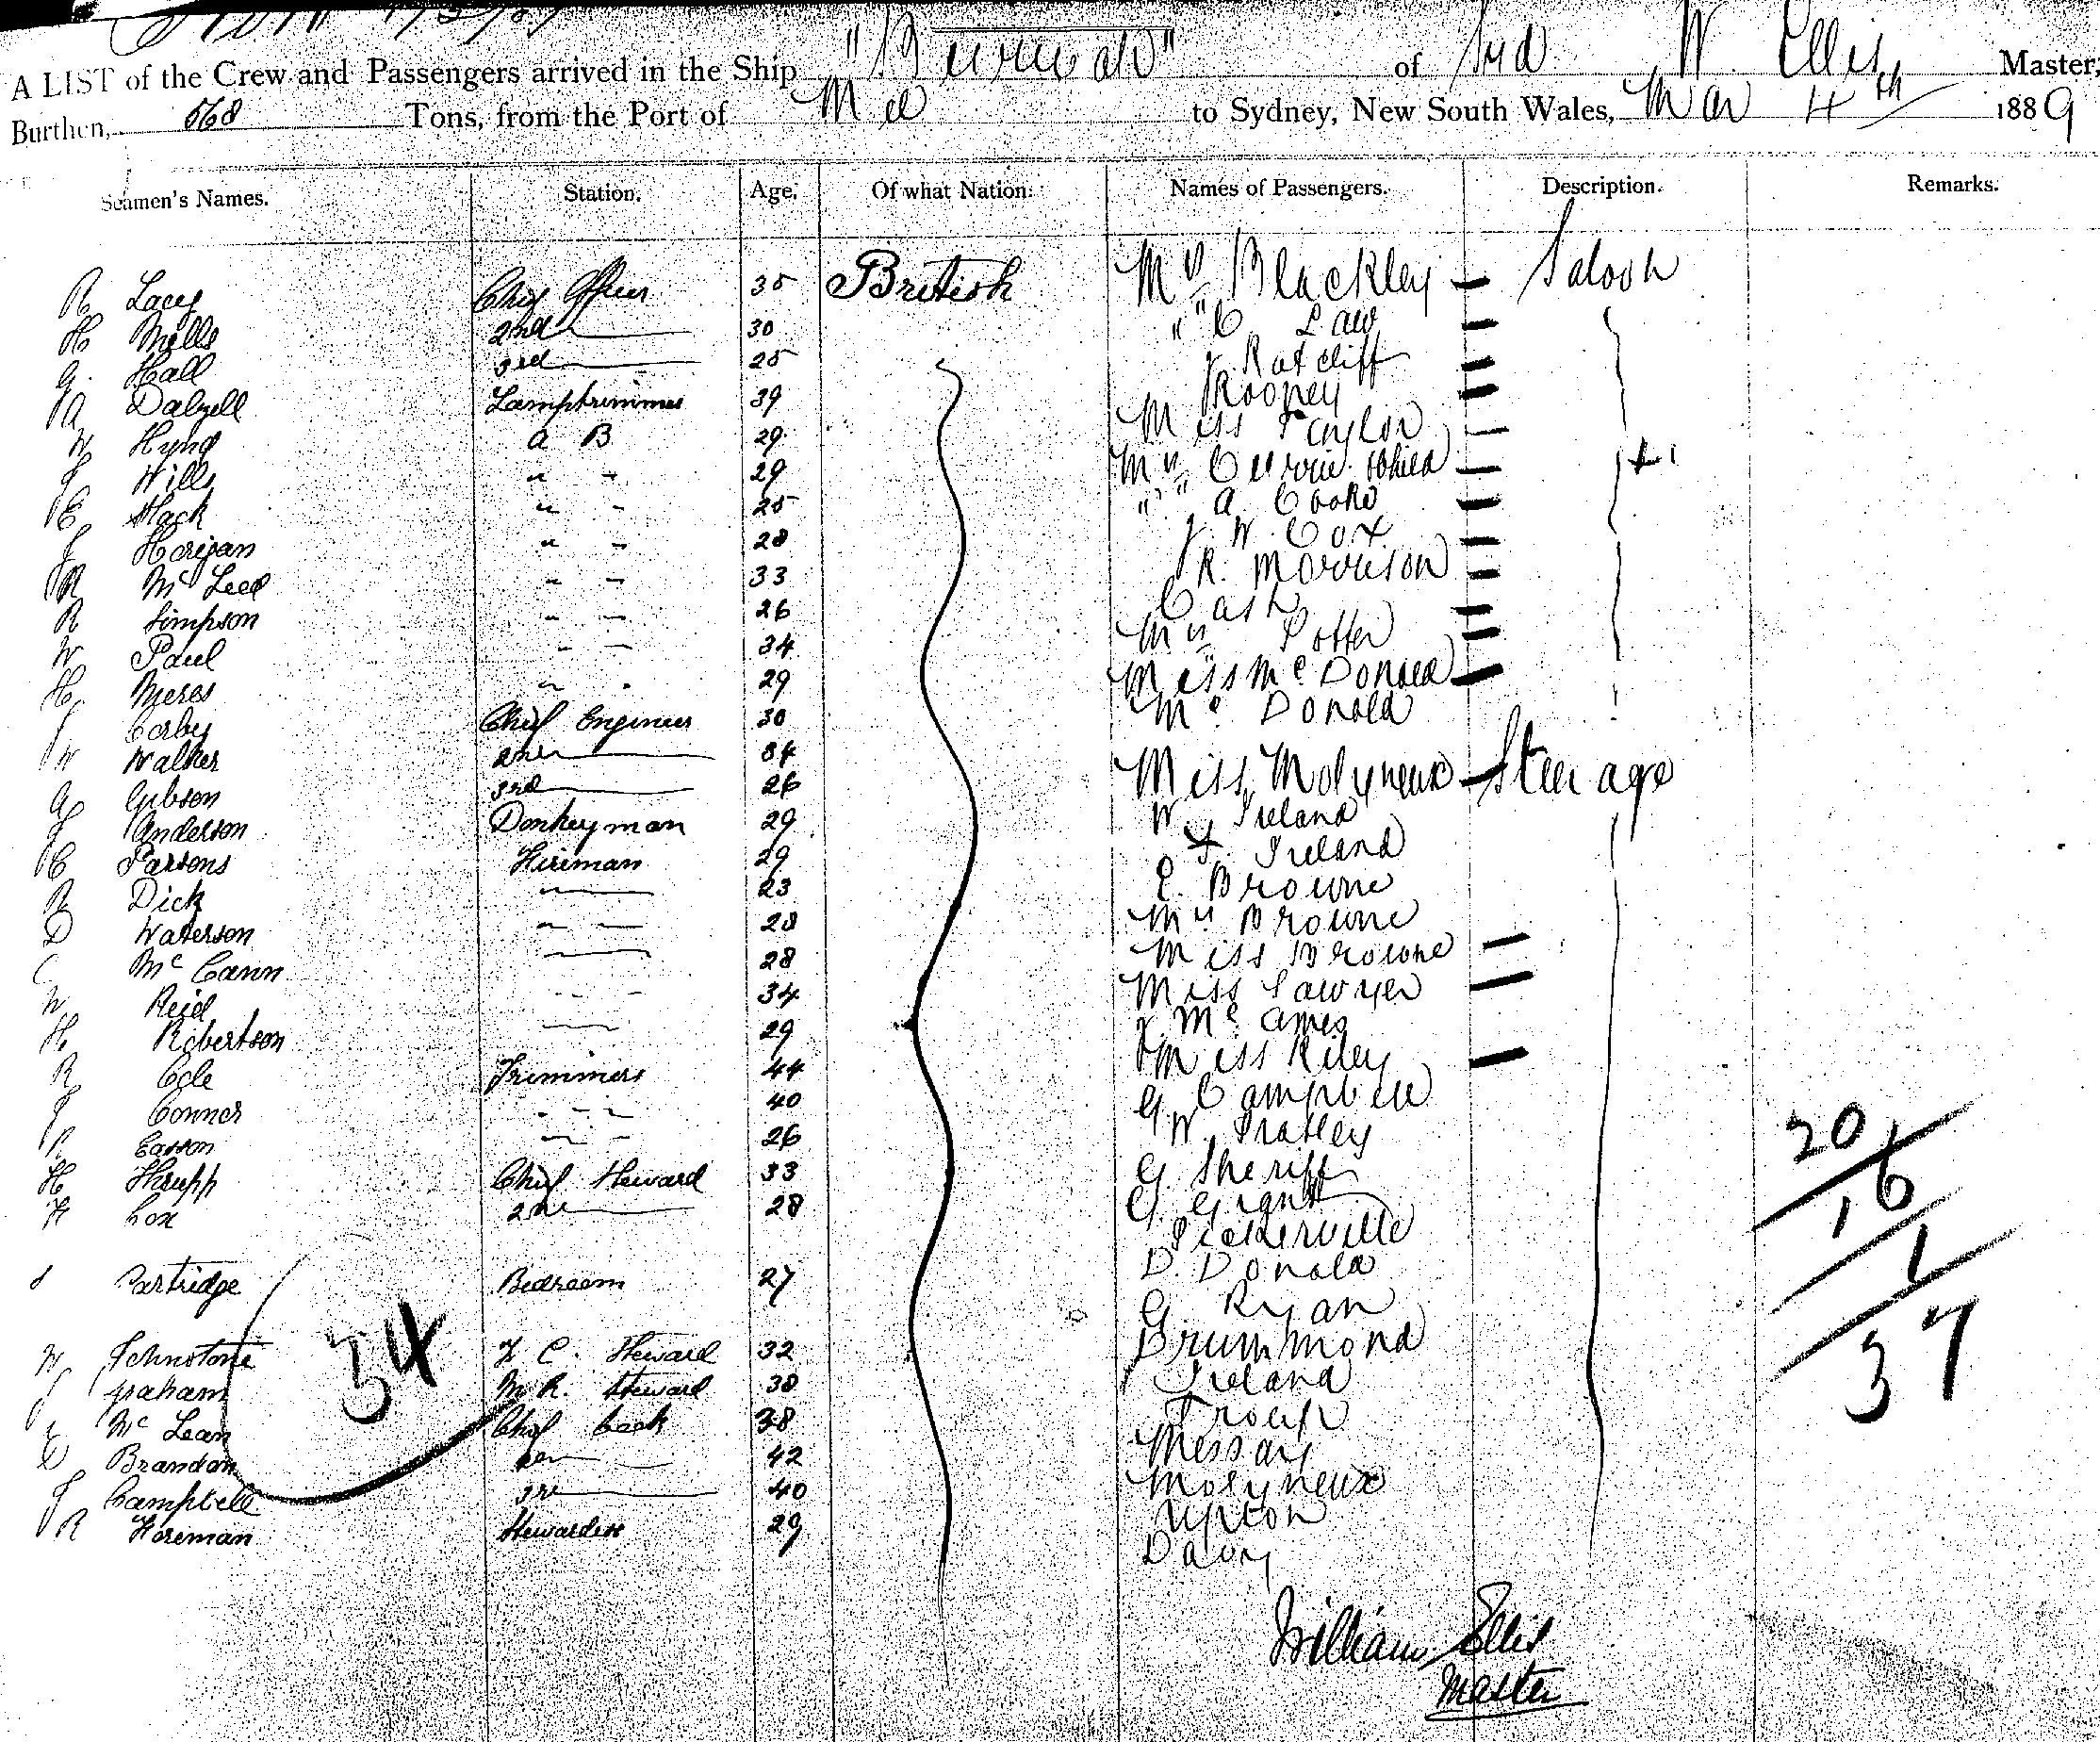 A LIST of the Crew and Passengers arrived in the Ship "Burwah" of Syd W Ellis Master,
Burthen, 568 Tons, from the Port of Mel to Sydney, New South Wales, Mar 4th 1889
Seamen's Names. Station. Age. Of what Nation. Names of Passengers. Description. Remarks.
R Lacey Chief Officer 35 British Mrs Blackley Saloon
H Mills 2nd 30 " " C Law
G. Hall 3rd 25 J Ratcliff
A Dalzell Lamptrimmer 39 Rooney
W Hynd A B 29 Miss Taylor
J Wills " - 29 Mrs Currie & child + 1
E Mack " - 25 " " A Cooke
J Horigan " - 28 J. W. Cox
R McLeod " - 33 R. Morrison
R Simpson - - 26 Cash
W Paul - - 34 Mrs Potter
H. Meres " - 29 Miss McDonald
J Corby Chief Engineer 30 McDonald
W Walker 2nd 34 Miss Molyneux Steerage
G Gibson 3rd 26 W. Ireland
J Anderson Donkeyman 29 J. Ireland
C Parsons Fireman 29 E. Browne
R Dick 23 Mrs Browne
D Waterson - - 28 Miss Browne
C McCann 28 Miss Sawyer
W Reid - - 34 J McAmes
H Robertson 29 Miss Riley
R Cole Trimmers 44 G. Campbell
J Conner - - 40 W. Pratley
P. Easson - - 26 G Sheriff
H Thrupp Chief Steward 33 G. Grant
F Cox 2nd 28 Pickerville
D. Donald
J Partridge Bedroom 27 G. Ryan
W Johnstone F C. Steward 32 Drummond
J Graham M R. Steward 38 Ireland
J McLean Chief Cook 38 Troup
E Brandon 2nd 42 Messay
J Campbell 3rd 40 Molyneux
R Foreman Stewardess 29 Upton
Davy
34
20
16
1
37
William Ellis
Master